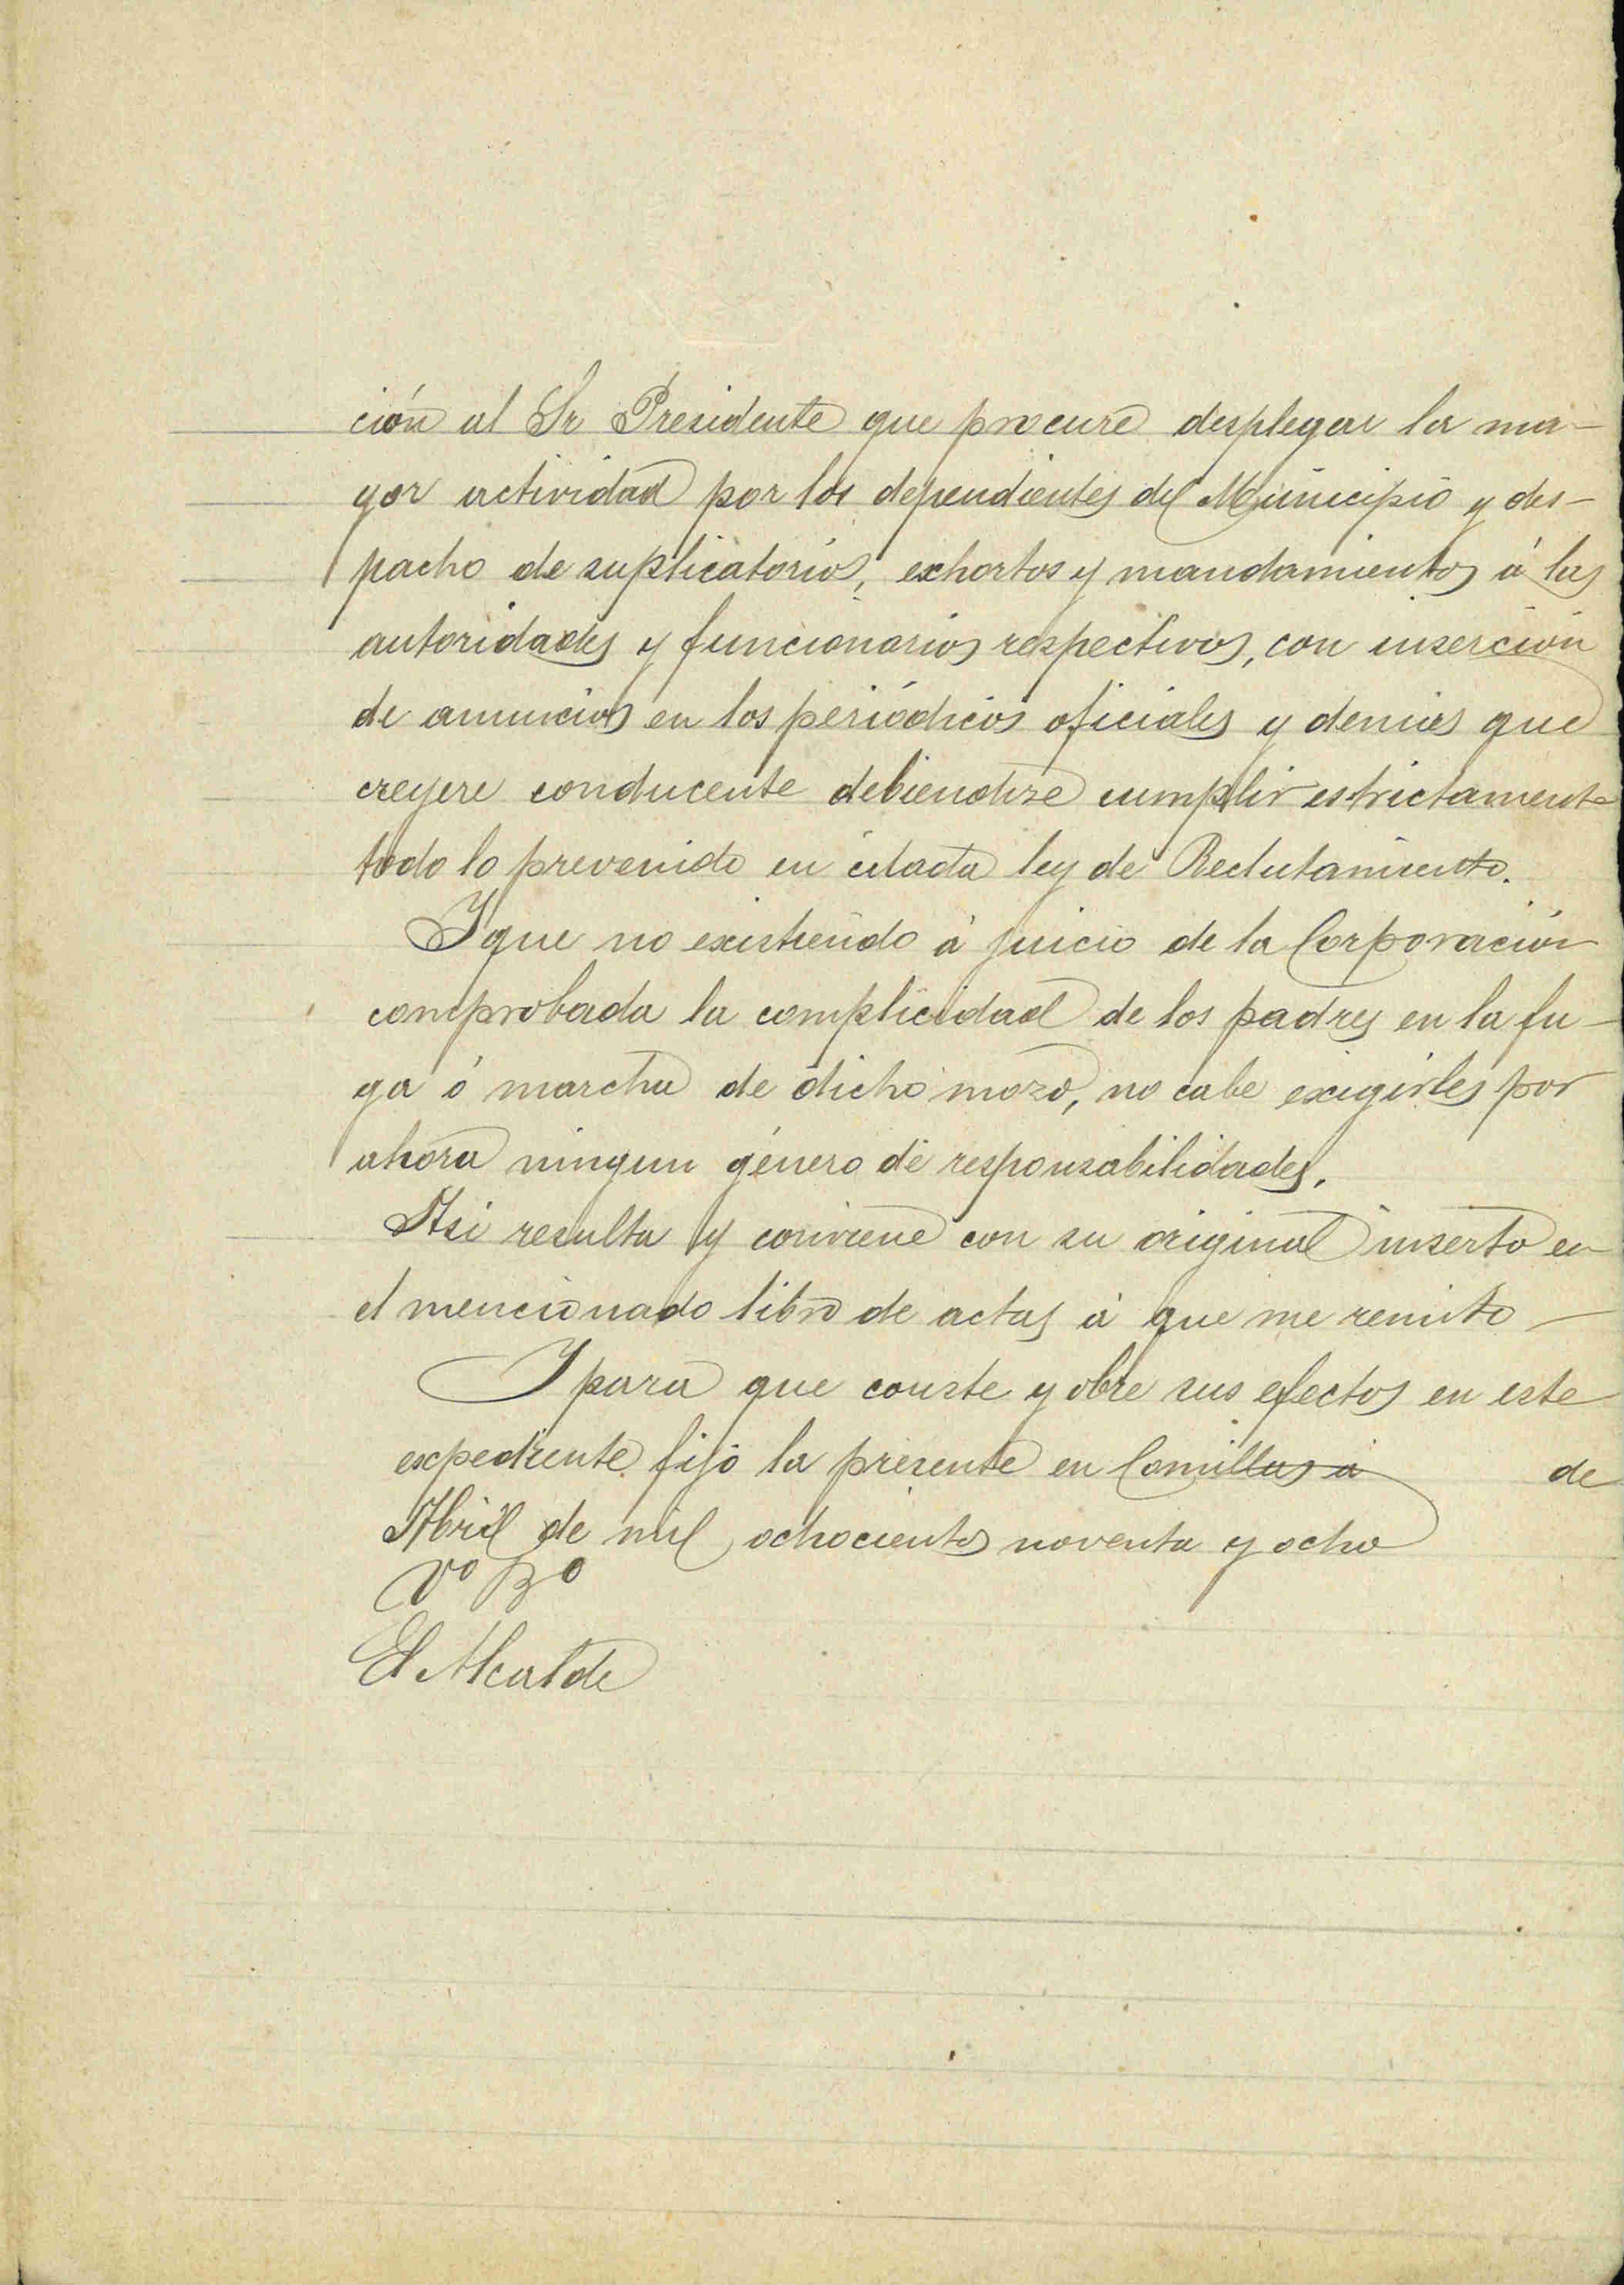 ción al Sr Presidente que procure desplegar la ma-
yor actividad por los dependientes del Municipio y des-
pacho de suplicatorios, exhortos y mandamientos á las
autoridades y funcionarios respectivos, con inserción
de anuncios en los periódicos oficiales y demas que
creyere conducente debiendose cumplir estrictamente
todo lo prevenido en citada ley de Reclutamiento.
Y que no existiendo á juicio de la Corporación
comprobada la complicidad de los padres en la fu-
ga ó marcha de dicho mozo, no cabe exigirles por
ahora ningun género de responsabilidades.
Asi resulta y conviene con su original inserto en
el mencionado libro de actas á que me remito —
Y para que conste y obre sus efectos en este
expediente fijo la presente en Comillas á de
Abril de mil ochocientos noventa y ocho
Vº Bº
El Alcalde